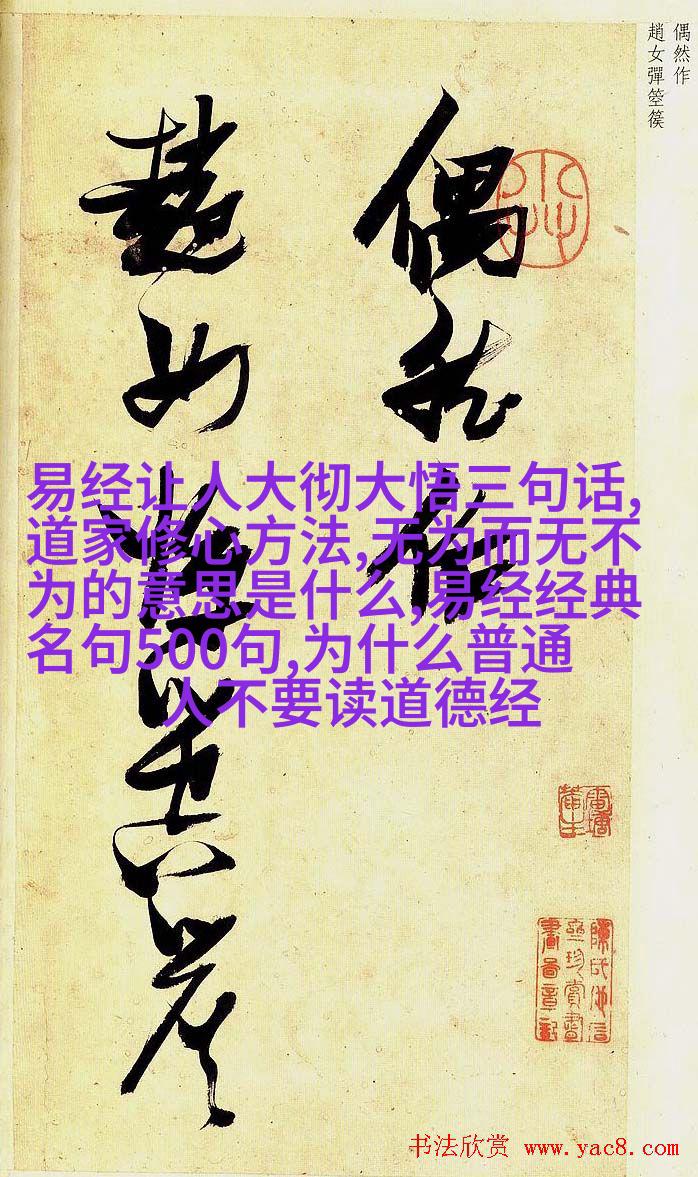 偶然作
趙女彈箜篌
偶然作
趙女彈箜篌
易经让人大彻大悟三句话,
道家修心方法,无为而无不
为的意思是什么,易经经典
名句500句,为什么普通
人不要读道德经
书法欣赏 www.yac8.com